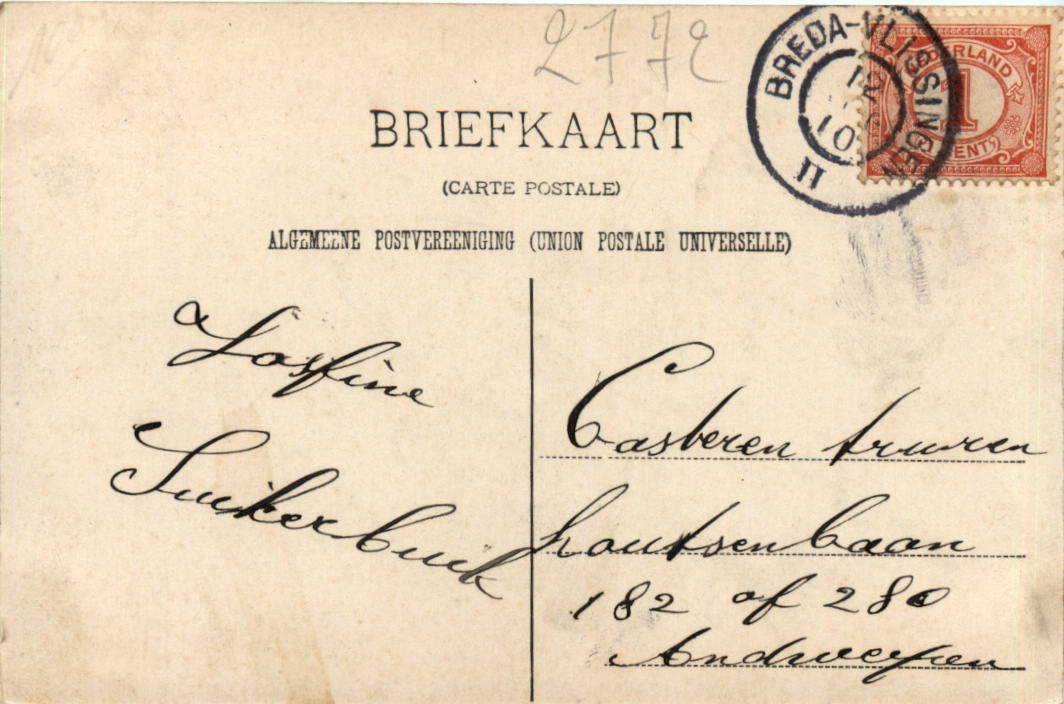 2772
BREDA-VLISSINGEN
II
NEDERLAND
1
CENT
BRIEFKAART
(CARTE POSTALE)
ALGEMEENE POSTVEREENIGING (UNION POSTALE UNIVERSELLE)
Josfine
Suikerbuik
Casberen truren
houtsenbaan
182 of 280
Andwerpen